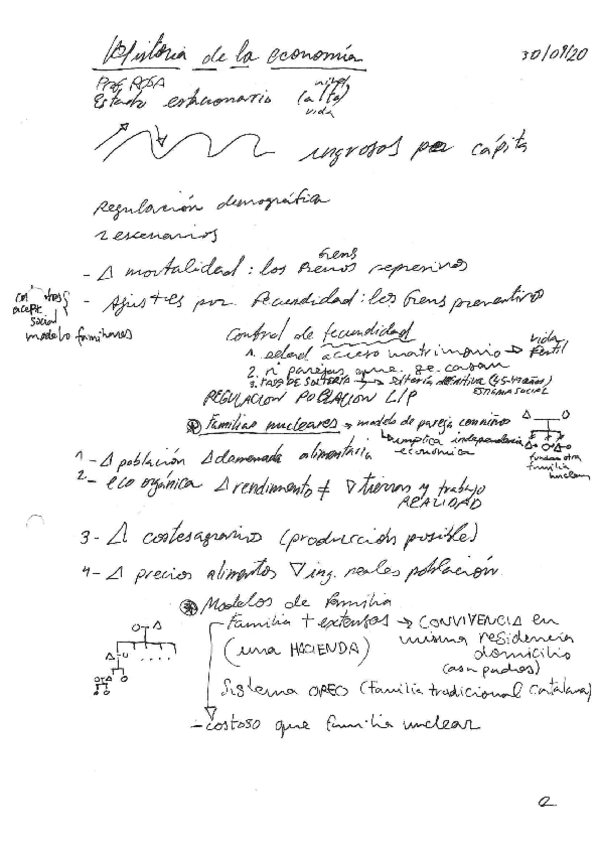 Historia de la economía
30/09/20
Estado estacionario (alto) nivel vida
ingresos per cápita
Regulación demográfica
2 escenarios
- Δ mortalidad: los frenos represivos
- Ajustes por fecundidad: los frens preventivos
social
modelo familiares
Control de fecundidad
1. edad acceso matrimonio → vida fertil
2. nº parejas que se casan
3. TASA DE SOLTERIA → solteria definitiva (45-49 años)
ESTIGMA SOCIAL
REGULACION POBLACION L/P
Familias nucleares → modelo de pareja con niños
↳ implica independencia
económica
otra
familia
nuclear
1 - Δ población Δ demanda alimentaria
2 - eco orgánica Δ rendimiento ≠ ∇ tierras y trabajo
REALIDAD
3 - Δ costes agrarios (producción posible)
4 - Δ precios alimentos ∇ ing. reales población
Modelos de familia
Familia + extensas → CONVIVENCIA en
(una HACIENDA) misma residencia
domicilio
(con padres)
Sistema (Familia tradicional catalana)
- costoso que familia nuclear
2